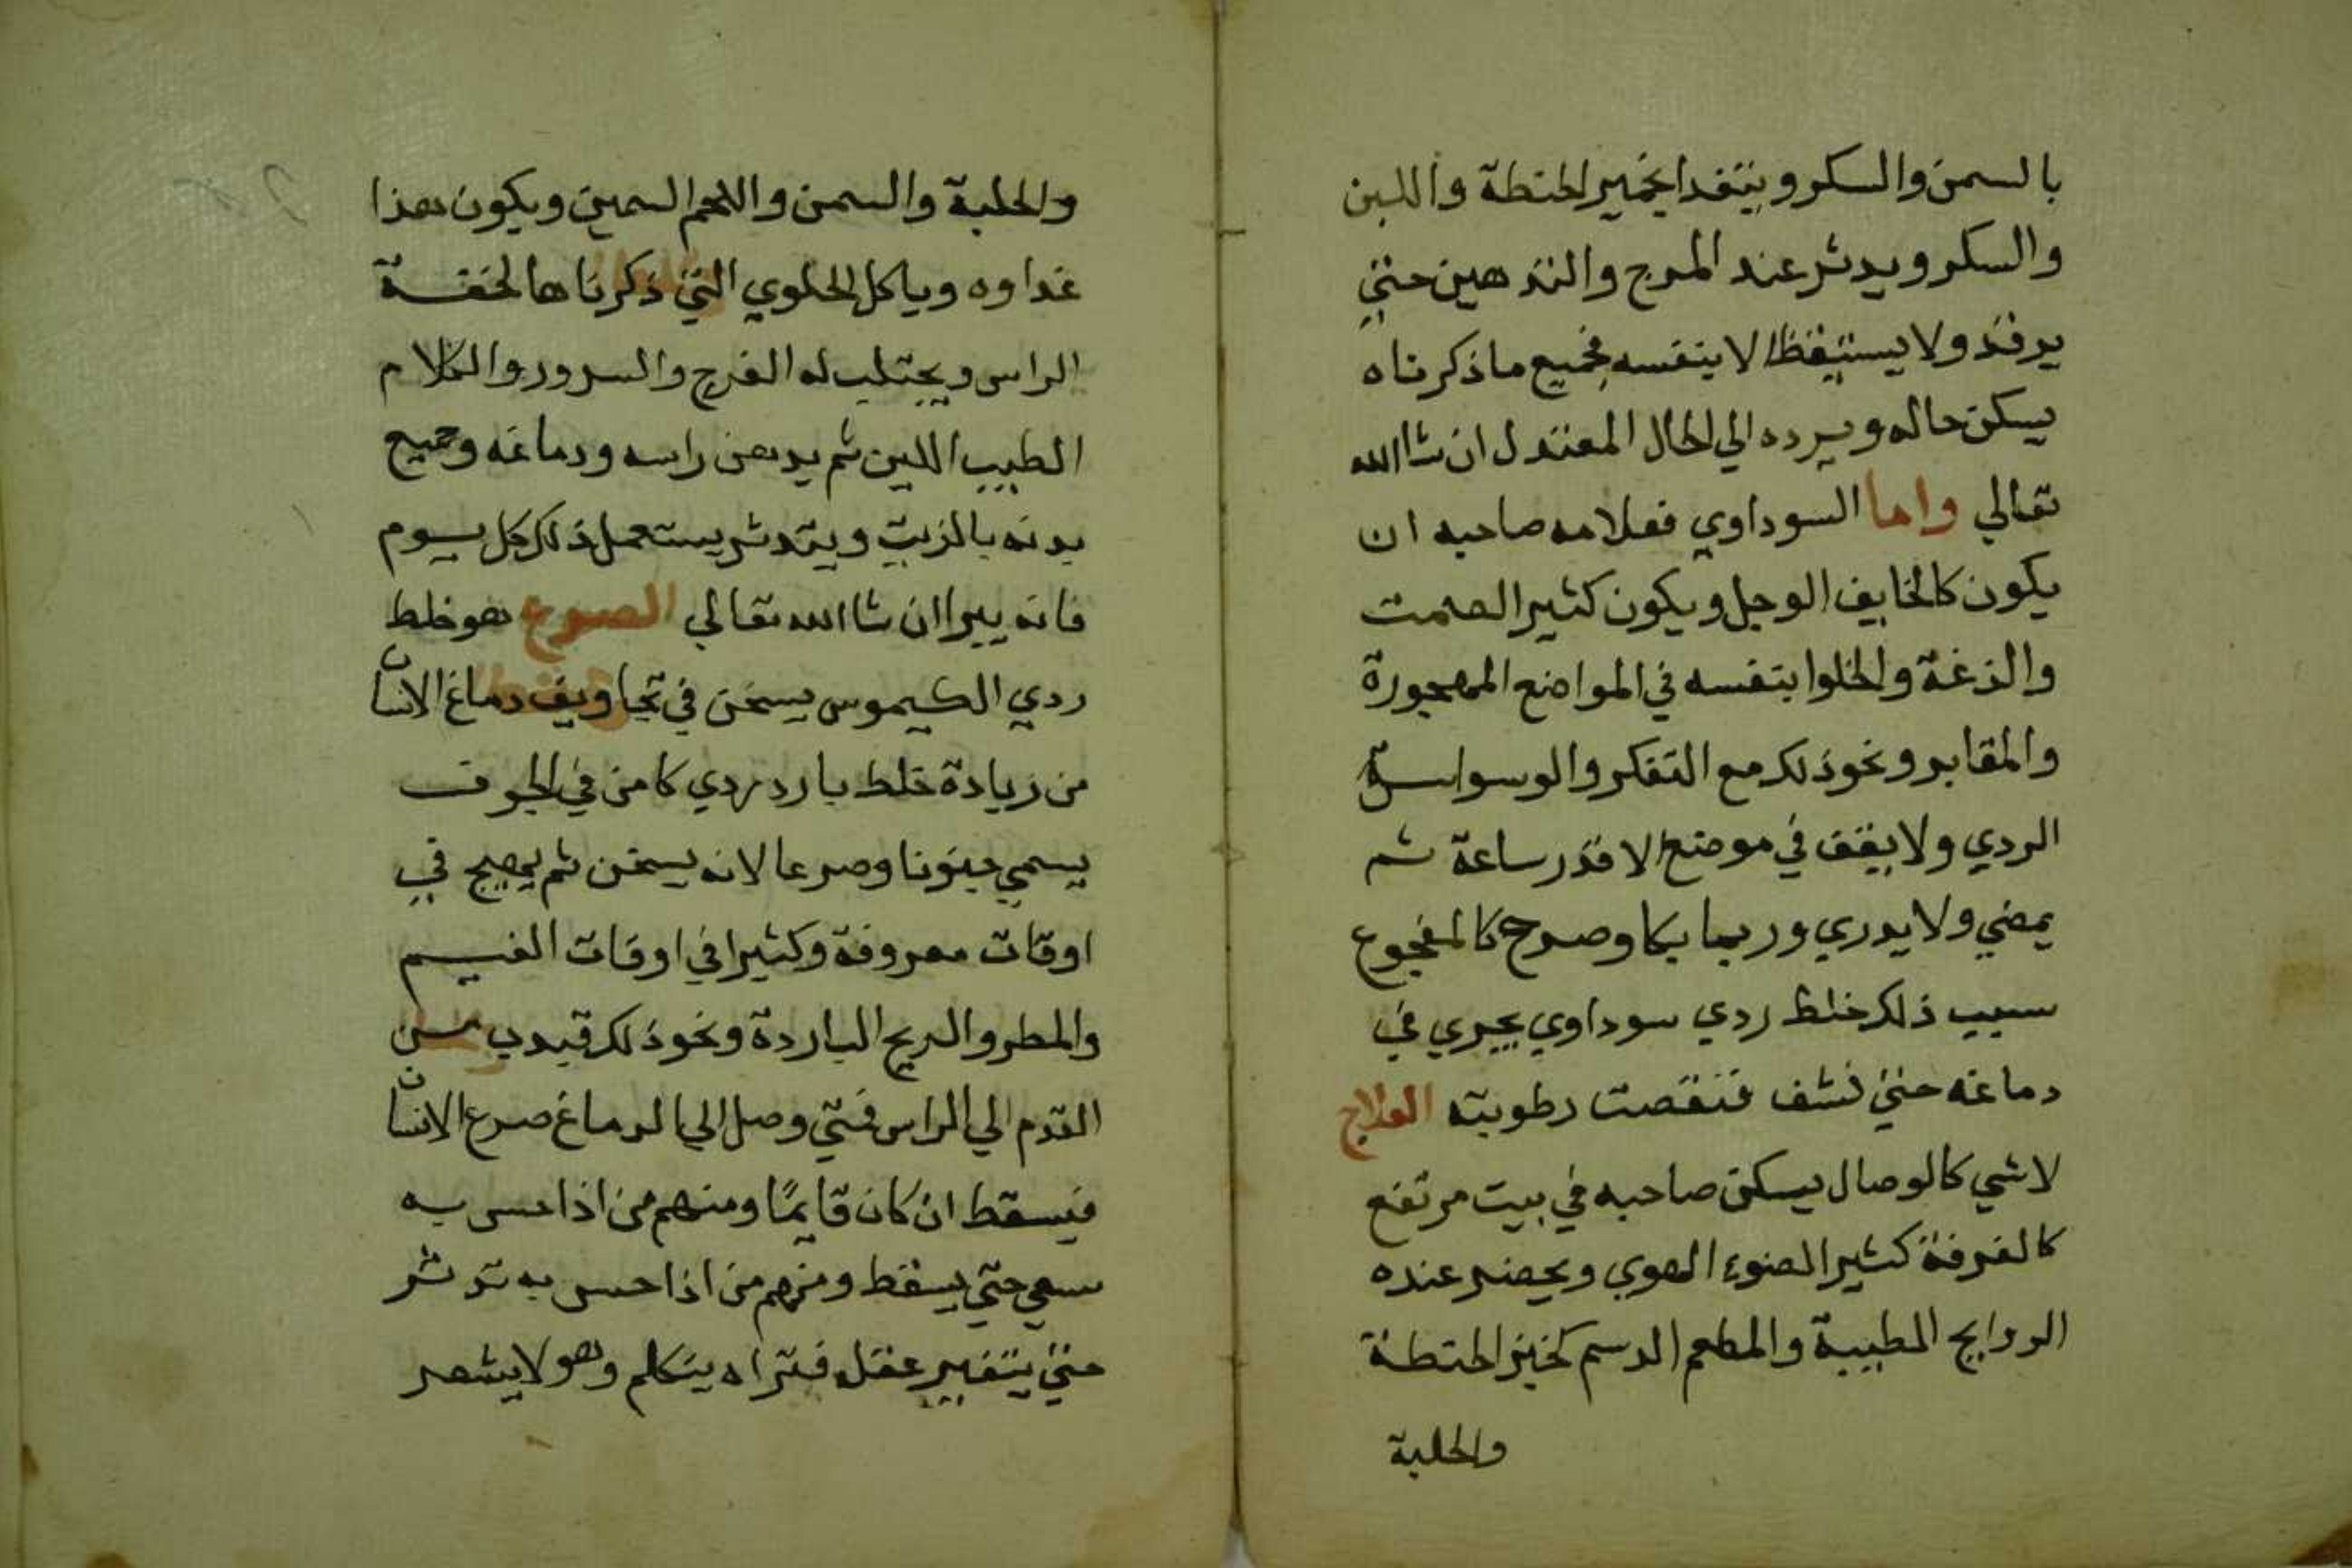 بالسمن والسكر ويتغدا بخمير الحنطة واللبن
والسكر ويدثر عند المرج والتدهين حتي
يرقد ولا يستيقظ الا بنفسه فجميع ما ذكرناه
يسكن حاله ويرده الي الحال المعتدل ان شا الله
تعالي واما السوداوي فعلامه صاحبه ان
يكون كالخايف الوجل ويكون كثير الصمت
والزغة والخلوا بنفسه في المواضع المهجورة
والمقابر ونحو ذلك مع التفكر والوسواس
الردي ولا يقف في موضع الا قدر ساعة ثم
يمضي ولا يدري وربما بكا وصرخ كالمفجوع
سبب ذلك خلط ردي سوداوي يجري في
دماغه حتي نشف فنقصت رطوبته العلاج
لا شي كالوصال يسكن صاحبه في بيت مرتفع
كالغرفة كثير الضوء الهوي ويحضر عنده
الروايح الطيبة والمطعم الدسم كخبز الحنطة
والحلبة
والحلبة والسمن واللحم السمين ويكون هذا
غداوه وياكل الحلوي التي ذكرناها لخفة
الراس ويجتلب له الفرح والسرور والكلام
الطيب اللين ثم يدهن راسه ودماغه وجميع
بدنه بالزيت ويتدثر يستعمل ذلك كل يوم
فانه يبرا ان شا الله تعالي الصرع هو خلط
ردي الكيموس يسخن في تجاويف دماغ الانسان
من زيادة خلط بارد ردي كامن في الجوف
يسمي جنونا وصرعا لانه يسخن ثم يهيج في
اوقات معروفة وكثيرا في اوقات الغيم
والمطر والريح الباردة ونحو ذلك فيدب من
القدم الي الراس فمتي وصل الي الدماغ صرع الانسان
فيسقط ان كان قايمًا ومنهم من اذا حس به
سعي حتي يسقط ومنهم من اذا حس به تدثر
حتي يتغير عقله فتراه يتكلم وهو لا يشعر